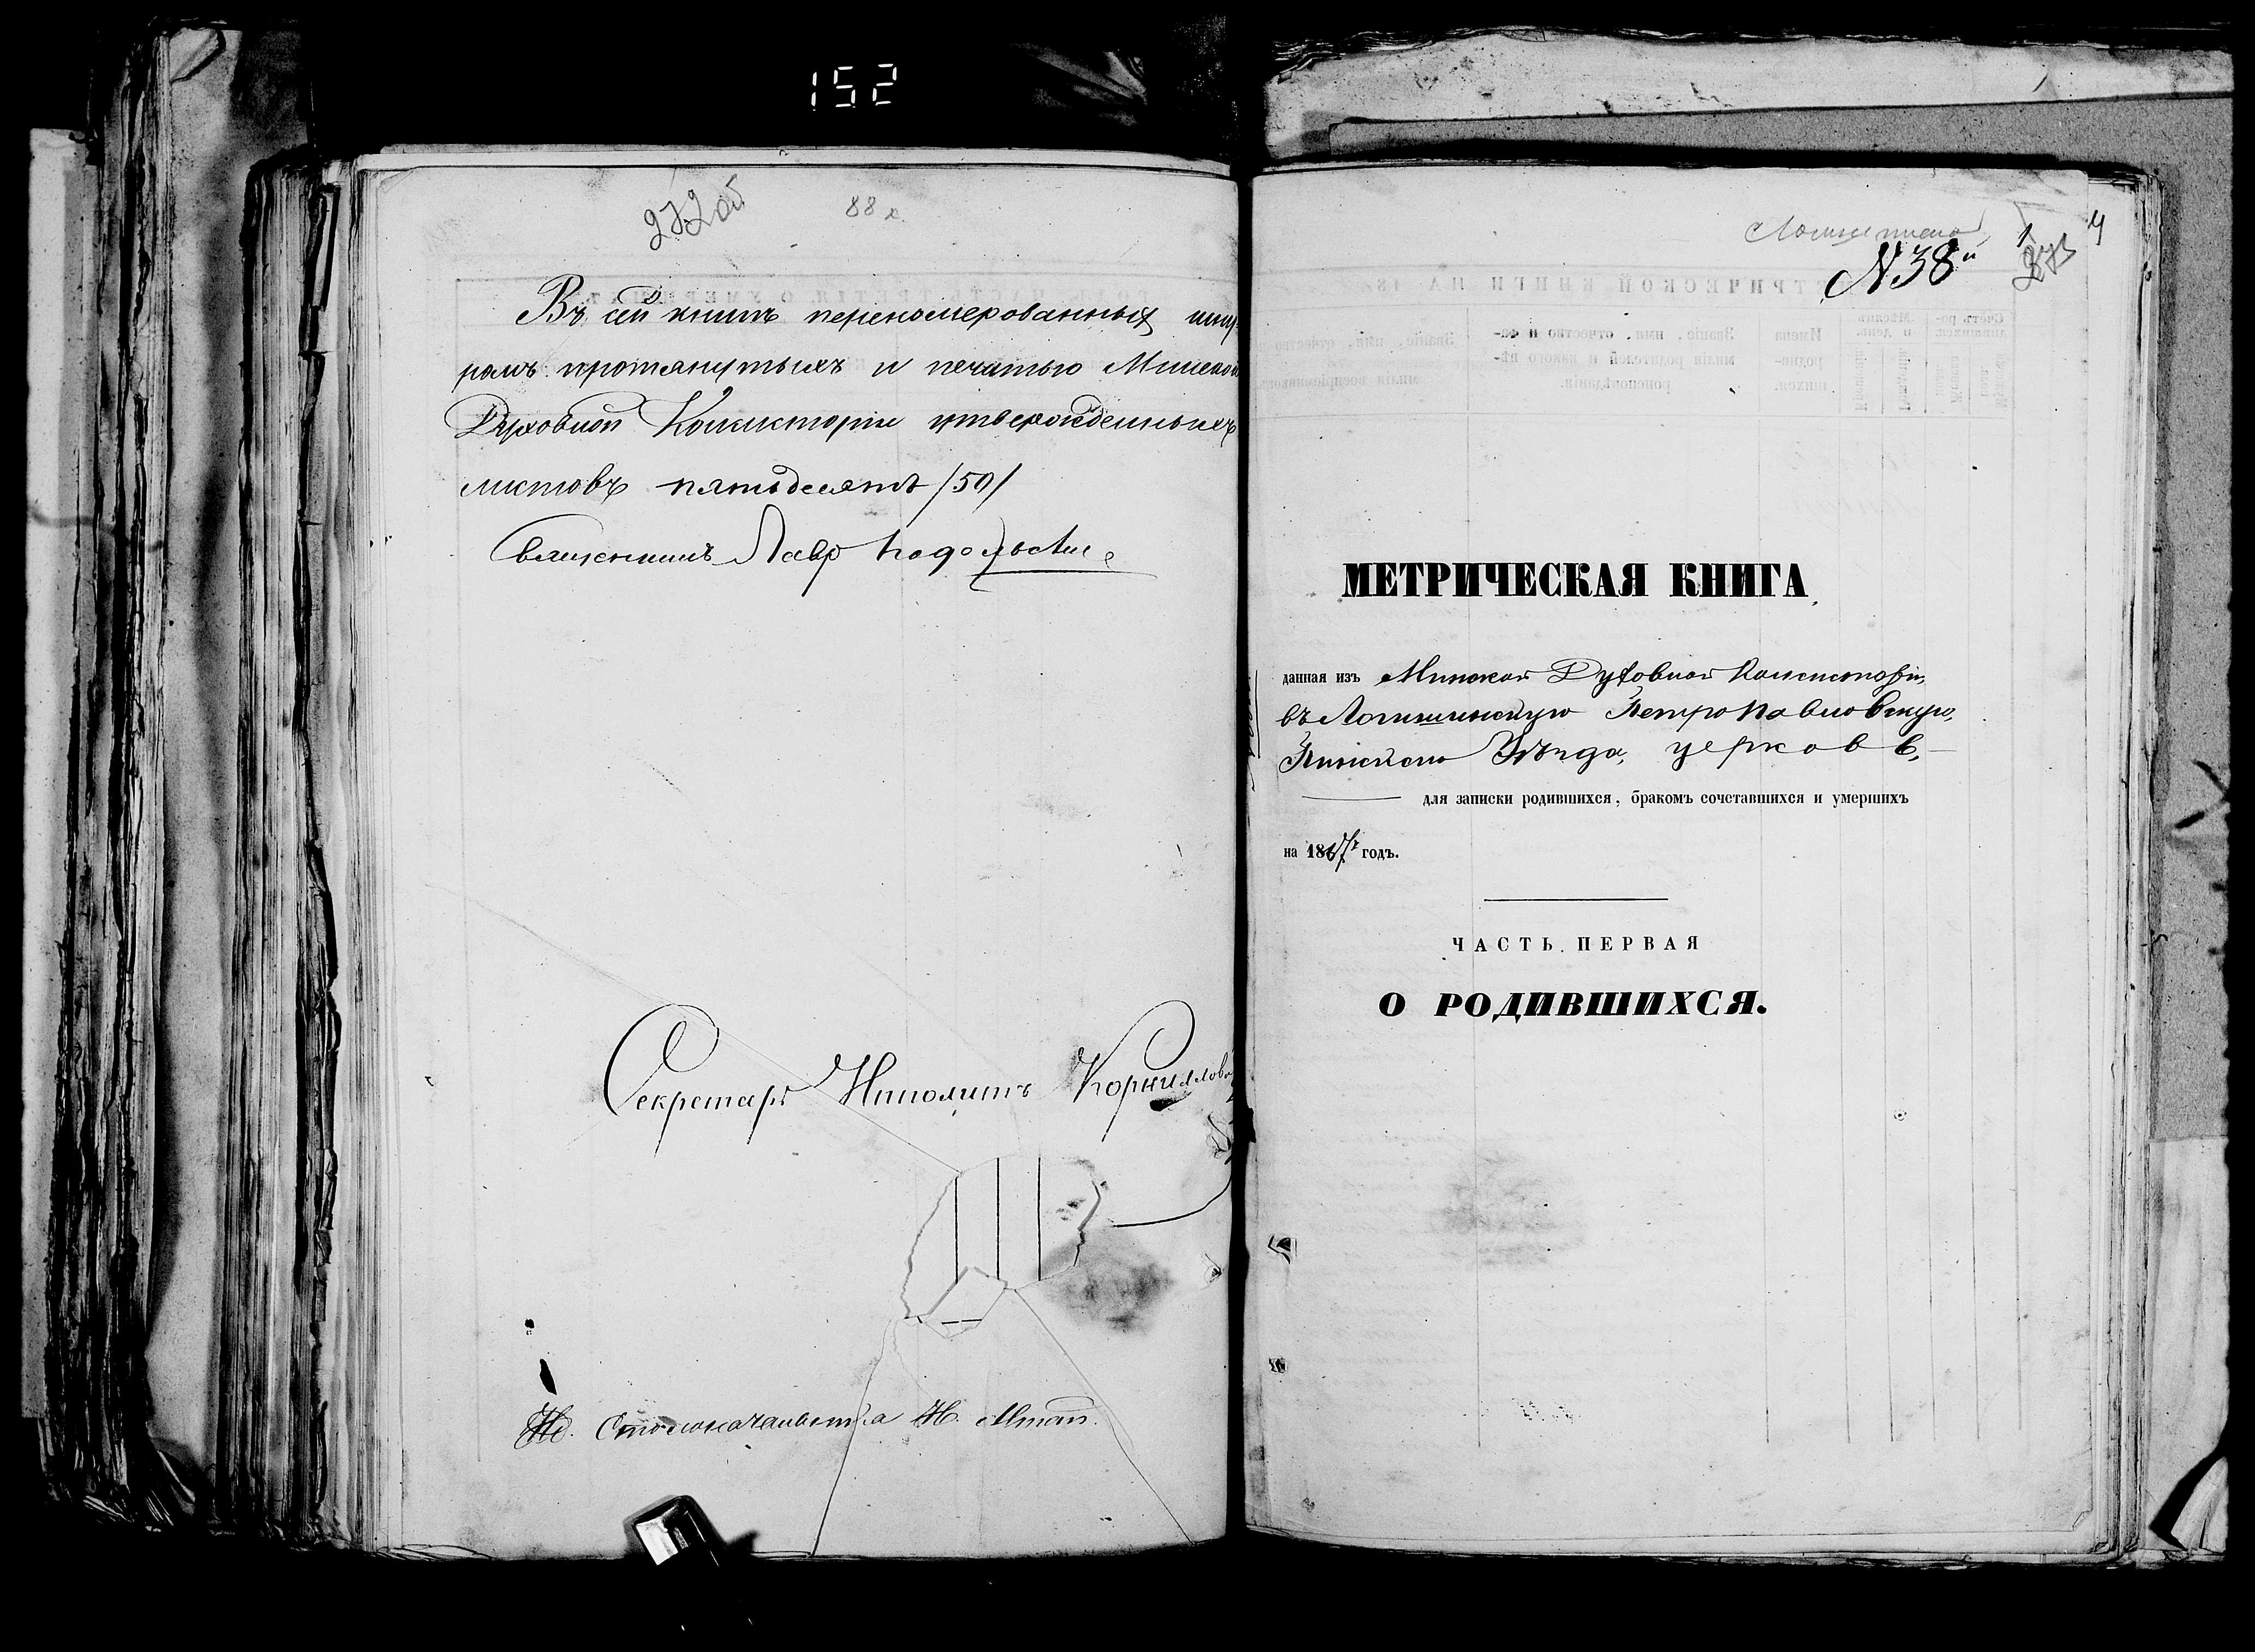 152
272об
88 х.
Въ сей книгѣ переномерованныхъ шну-
ромъ протянутыхъ и печатью Минской
Духовной Консисторіи утвержденныхъ
листовъ пятьдесятъ /50/
Священникъ Лавр Подольскі
Секретарь Ипполитъ Корниллов
Столоначальника Н.
N 38й
1
273
МЕТРИЧЕСКАЯ КНИГА
данная изъ Минской Духовной Консисторіи
въ Логишинскую Петропавловскую,
Пинскаго Уѣзда, церковь,
для записки родившихся, бракомъ сочетавшихся и умершихъ
на 1867й годъ.
ЧАСТЬ ПЕРВАЯ
О РОДИВШИХСЯ.